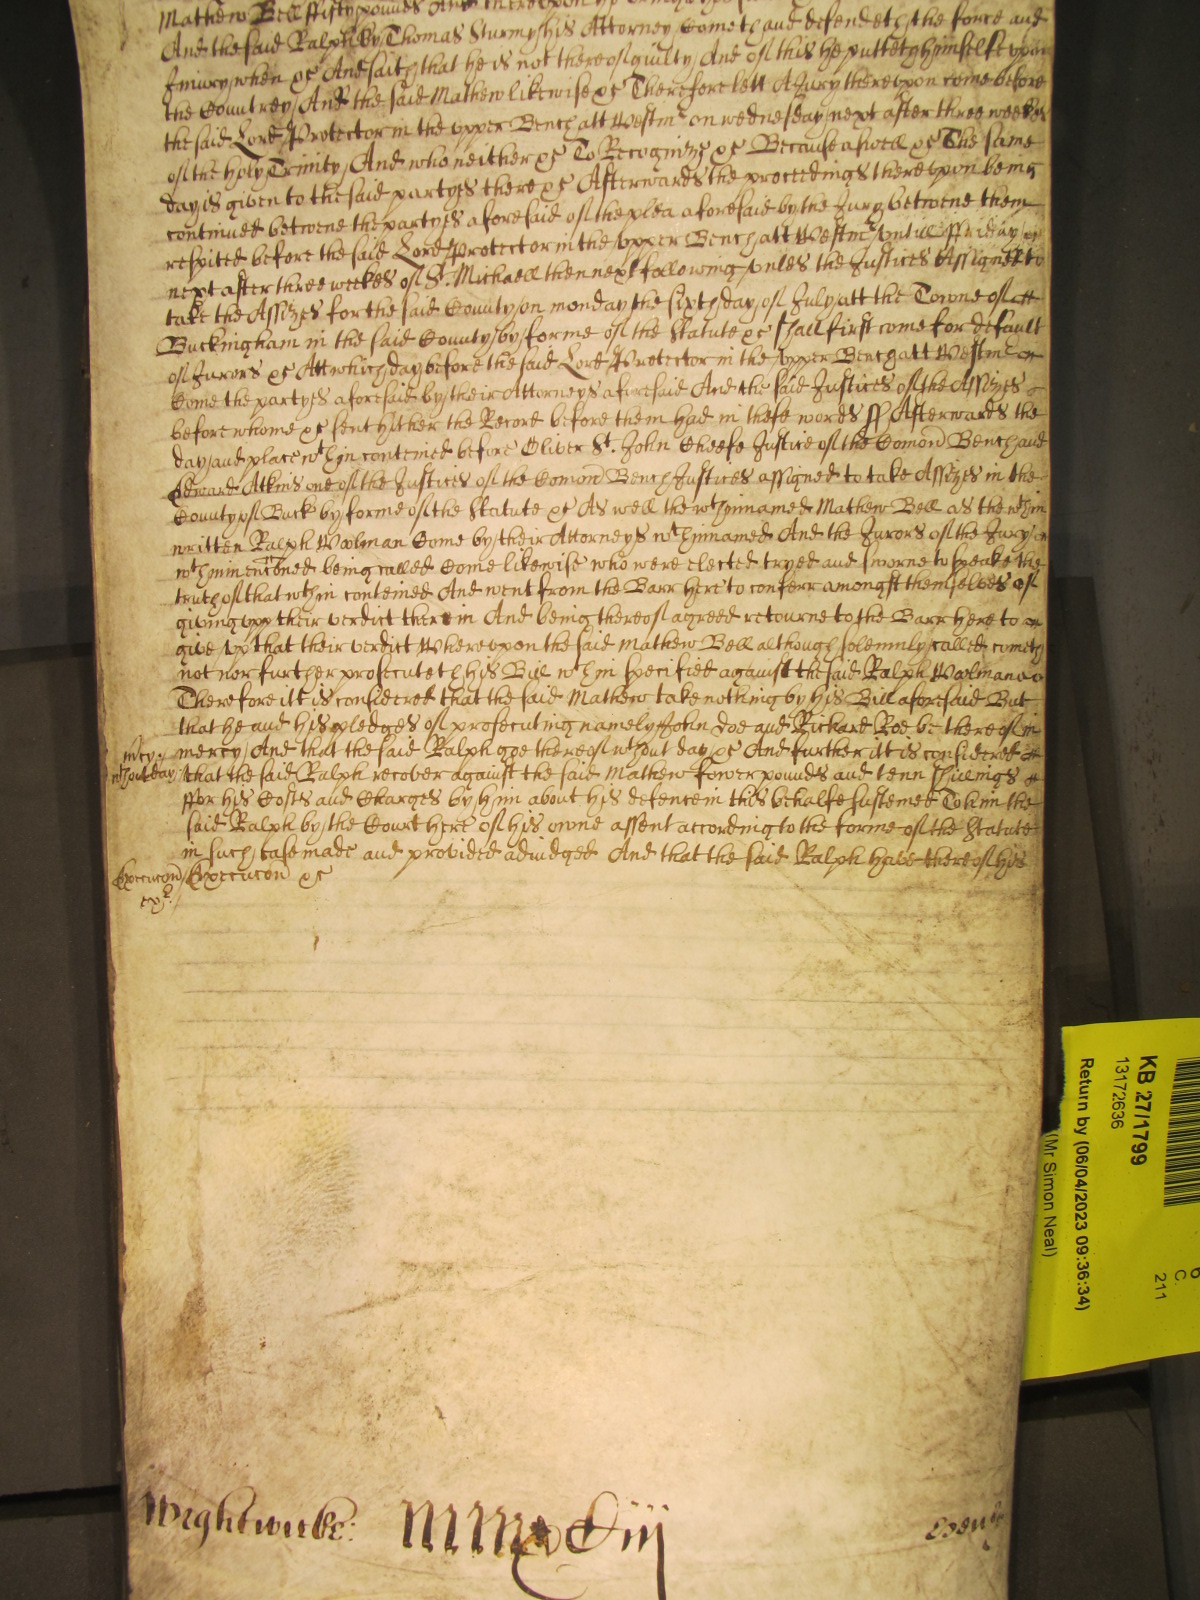 Mathew Bell ffifty pounds And thereupon he
And the said Ralph by Thomas Sturmy his Attorney Cometh and defendeth the force and
Iniury when &c And saith that he is not thereof guilty And of this he putteth himselfe vpon
the Countrey And the said Mathew likewise &c Therefore lett A Jury therevpon come before
the said Lord Protector in the vpper Bench att Westmr on wednesday next after three weekes
of the holy Trinity And who neither &c To Recognize &c Because aswell &c The same
day is given to the said partyes there &c Afterwards the proceedings therevpon being
continued betwene the partyes aforesaid of the plea aforesaid by the Jury betwene them
respited before the said Lord Protector in the vpper Bench att Westmr vntill ffriday
next after three weekes of St. Michaell then next following vnles the Justices Assigned to
take the Assizes for the said County on monday the sixth day of July att the Towne of
Buckingham in the said County by forme of the Statute &c shall first come for default
of Jurors &c Att which day before the said Lord Protector in the vpper Bench att Westmr
Come the partyes aforesaid by their Attorneys aforesaid And the said Justices of the Assizes
before whome &c sent hither the Record before them had in these words ss Afterwards the
day and place wthin conteined before Oliver St. John Cheefe Justice of the Comon Bench and
Edward Atkins one of the Justices of the Comon Bench Justices assigned to take Assizes in the
County of Buck by forme of the Statute &c As well the wthinnamed Mathew Bell as the wthin
written Ralph Woolman Come by their Attorneys wthinnamed And the Jurors of the Jury
wthin menconed being called Come likewise who were elected tryed and sworne to speake the
truth of that wthin conteined And went from the Barr here to conferr amongst themselves of
giving vpp their verdict therein And being thereof agreed retourne to the Barr here to
give vp that their verdict Wherevpon the said Mathew Bell although solemnly called cometh
not nor further prosecuteth his Bill wthin specified against the said Ralph Woolman
Therefore itt is considered that the said Mathew take nothing by his Bill aforesaid But
that he and his pledges of prosecuting namely John Doe and Richard Roe be thereof in
mcy mercy And that the said Ralph goe thereof wthout day &c And further itt is considered
wthout day that the said Ralph recover against the said Mathew fower pounds and tenn shillings
ffor his Costs and Charges by him about his defence in this behalfe susteined To him the
said Ralph by the Court here of his owne assent according to the forme of the Statute
in such case made and provided adiudged And that the said Ralph have thereof his
Execucon Execucon &c
Wightwicke:
KB 27/1799
13172636
Return by (06/04/2023 09:36:34)
(Mr Simon Neal)
6
C
211